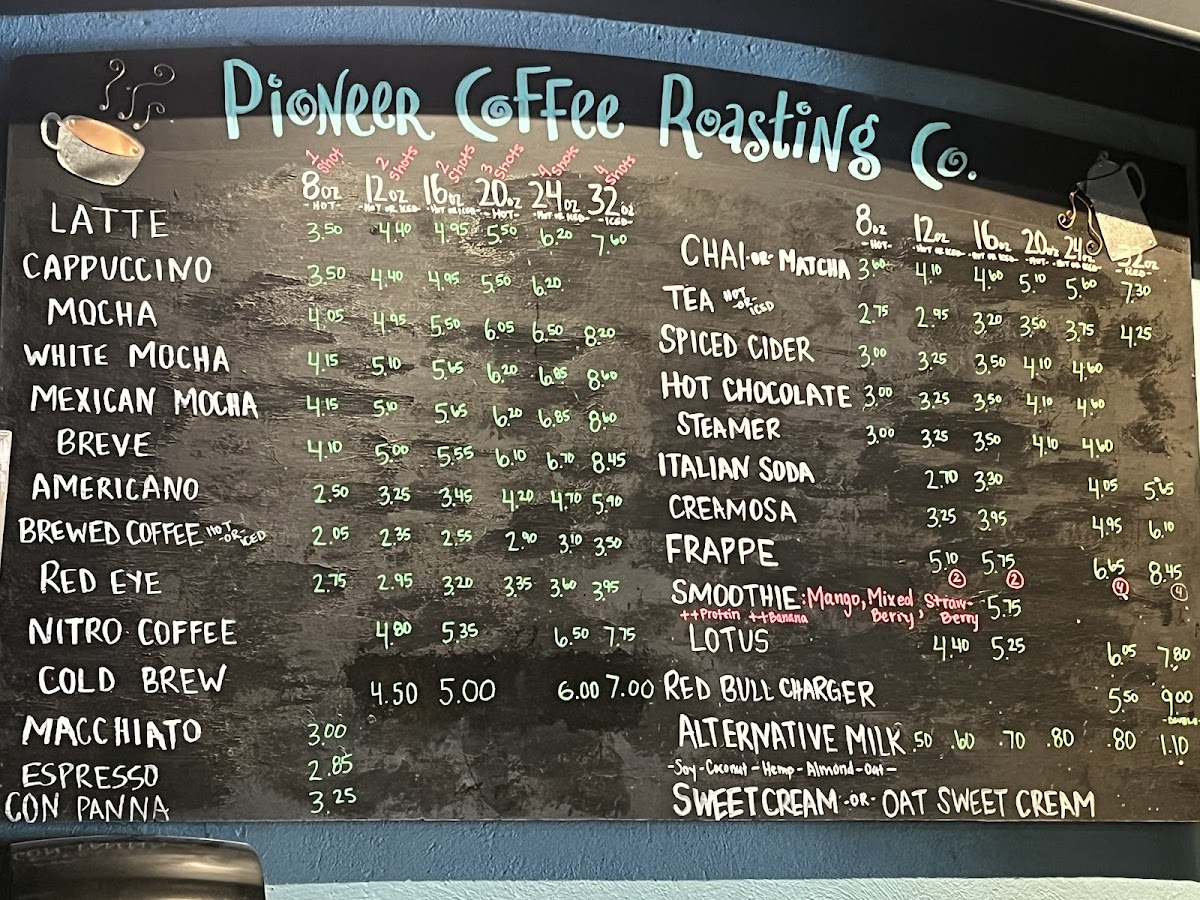 Pioneer Coffee Roasting Co.
1 shot 2 shots 2 shots 3 shots 4 shots 4 shots
8oz 12oz 16oz 20oz 24oz 32oz
-HOT- -HOT OR ICED- -HOT OR ICED- -HOT- -HOT OR ICED- -ICED-
LATTE 3.50 4.40 4.95 5.50 6.20 7.60
CAPPUCCINO 3.50 4.40 4.95 5.50 6.20
MOCHA 4.05 4.95 5.50 6.05 6.50 8.20
WHITE MOCHA 4.15 5.10 5.65 6.20 6.85 8.60
MEXICAN MOCHA 4.15 5.10 5.65 6.20 6.85 8.60
BREVE 4.10 5.00 5.55 6.10 6.70 8.45
AMERICANO 2.50 3.25 3.45 4.20 4.70 5.90
BREWED COFFEE HOT -OR- ICED 2.05 2.35 2.55 2.90 3.10 3.50
RED EYE 2.75 2.95 3.20 3.35 3.60 3.95
NITRO COFFEE 4.80 5.35 6.50 7.75
COLD BREW 4.50 5.00 6.00 7.00
MACCHIATO 3.00
ESPRESSO 2.85
CON PANNA 3.25
8oz 12oz 16oz 20oz 24oz 32oz
-HOT- -HOT OR ICED- -HOT OR ICED- -HOT- -HOT OR ICED- -ICED-
CHAI -OR- MATCHA 3.60 4.10 4.60 5.10 5.60 7.30
TEA HOT -OR- ICED 2.75 2.95 3.20 3.50 3.75 4.25
SPICED CIDER 3.00 3.25 3.50 4.10 4.60
HOT CHOCOLATE 3.00 3.25 3.50 4.10 4.60
STEAMER 3.00 3.25 3.50 4.10 4.60
ITALIAN SODA 2.70 3.30 4.05 5.65
CREAMOSA 3.25 3.95 4.95 6.10
FRAPPE 5.10 5.75 6.65 8.45
2 2 4 4
SMOOTHIE: Mango, Mixed Berry, Straw-Berry 5.75
++Protein ++Banana
LOTUS 4.40 5.25 6.05 7.80
RED BULL CHARGER 5.50 9.00
-DOUBLE-
ALTERNATIVE MILK .50 .60 .70 .80 .80 1.10
-Soy-Coconut-Hemp-Almond-Oat-
SWEET CREAM -OR- OAT SWEET CREAM